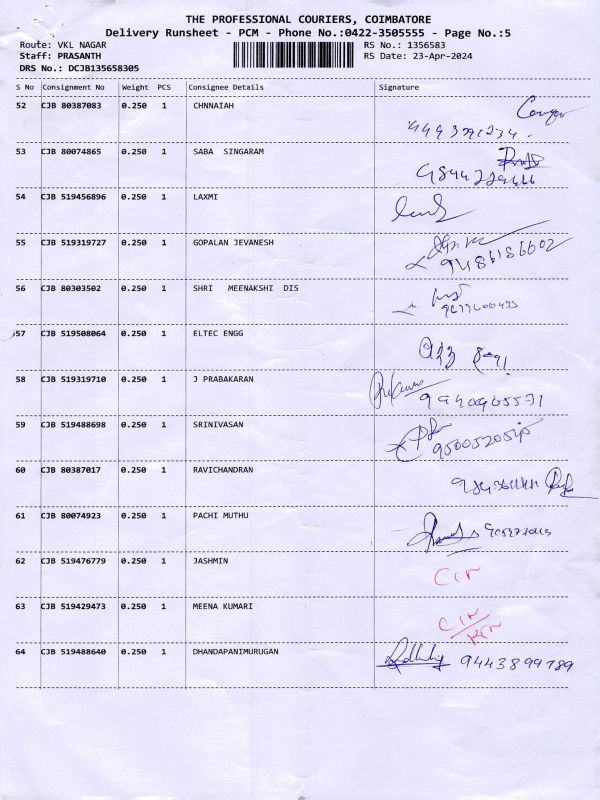 THE PROFESSIONAL COURIERS, COIMBATORE
Delivery Runsheet - PCM - Phone No.:0422-3505555 - Page No.:5
Route: VKL NAGAR RS No.: 1356583
Staff: PRASANTH RS Date: 23-Apr-2024
DRS No.: DCJB135658305
S No Consignment No Weight PCS Consignee Details Signature
52 CJB 80387083 0.250 1 CHNNAIAH
53 CJB 80074865 0.250 1 SABA SINGARAM
54 CJB 519456896 0.250 1 LAXMI
55 CJB 519319727 0.250 1 GOPALAN JEVANESH
9486186602
56 CJB 80303502 0.250 1 SHRI MEENAKSHI DIS
57 CJB 519508064 0.250 1 ELTEC ENGG
58 CJB 519319710 0.250 1 J PRABAKARAN
59 CJB 519488698 0.250 1 SRINIVASAN
60 CJB 80387017 0.250 1 RAVICHANDRAN
61 CJB 80074923 0.250 1 PACHI MUTHU
62 CJB 519476779 0.250 1 JASHMIN
63 CJB 519429473 0.250 1 MEENA KUMARI
64 CJB 519488640 0.250 1 DHANDAPANIMURUGAN
9443899789